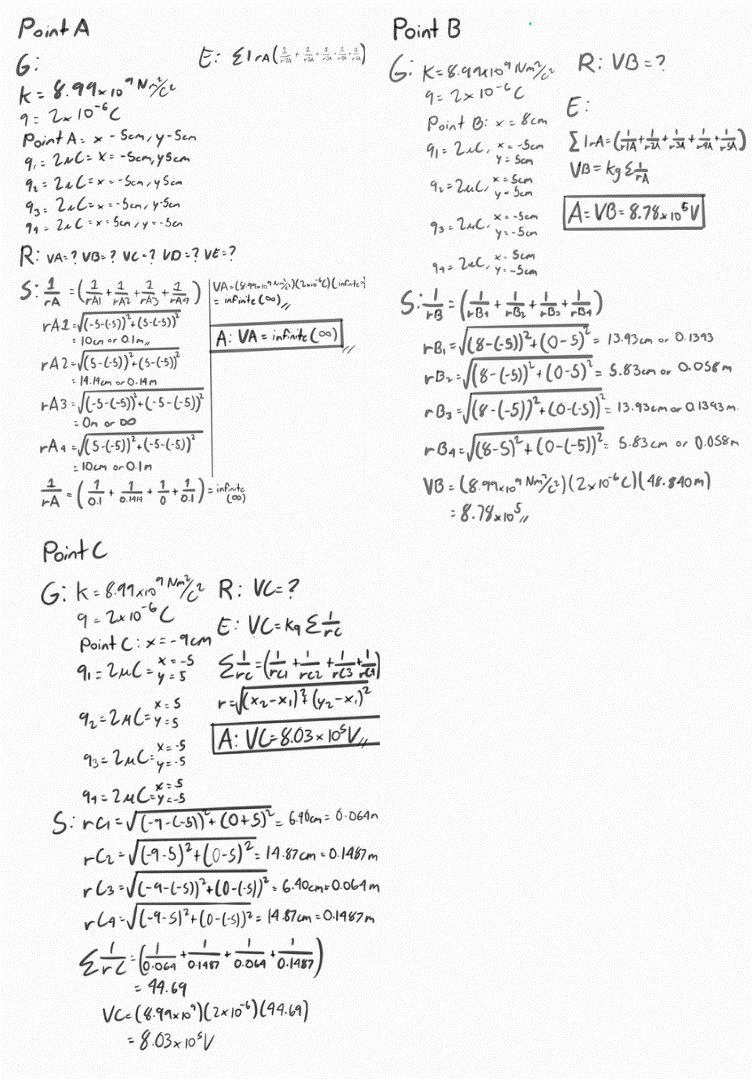 Point A
G:
E: Σ1rA(1/r1A + 1/r2A + 1/r3A + 1/r4A + 1/r5A)
K = 8.99x10⁹ Nm²/c²
q = 2x10⁻⁶C
Point A = x -5cm, y -5cm
q₁ = 2μC = x = -5cm, y5cm
q₂ = 2μC = x = -5cm, y5cm
q₃ = 2μC = x = -5cm, y-5cm
q₄ = 2μC = x = 5cm, y = -5cm
R: VA=? VB=? VC=? VD=? VE=?
S: 1/rA = (1/rA1 + 1/rA2 + 1/rA3 + 1/rA4)
rA1 = √(-5-(-5))²+(5-(-5))²
= 10cm or 0.1m,,
rA2 = √(5-(-5))²+(5-(-5))²
= 14.14cm or 0.14m
rA3 = √(-5-(-5))²+(-5-(-5))²
= 0m or ∞
rA4 = √(5-(-5))²+(-5-(-5))²
= 10cm or 0.1m
1/rA = (1/0.1 + 1/0.1414 + 1/0 + 1/0.1) = infinite (∞)
VA = (8.99x10⁹)(2x10⁻⁶C)(infinite)
= infinite (∞),,
A: VA = infinite (∞)
Point B
G: K = 8.99x10⁹ Nm²/c²
q = 2x10⁻⁶C
Point B: x = 8cm
q₁ = 2μC, x = -5cm
y = 5cm
q₂ = 2μC, x = 5cm
y = 5cm
q₃ = 2μC, x = -5cm
y = -5cm
q₄ = 2μC, x = 5cm
y = -5cm
R: VB = ?
E:
Σ1rA = (1/r1A + 1/r2A + 1/r3A + 1/r4A + 1/r5A)
VB = kq Σ1/rA
A = VB = 8.78x10⁵V
S: 1/rB = (1/rB1 + 1/rB2 + 1/rB3 + 1/rB4)
rB₁ = √(8-(-5))²+(0-5)² = 13.93cm or 0.1393
rB₂ = √(8-(-5))²+(0-5)² = 5.83cm or 0.058m
rB₃ = √(8-(-5))²+(0-(-5))² = 13.93cm or 0.1393m.
rB4 = √(8-5)²+(0-(-5))² = 5.83cm or 0.058m
VB = (8.99x10⁹ Nm²/c²)(2x10⁻⁶C)(48.840m)
= 8.78x10⁵,,
Point C
G: K = 8.99x10⁹ Nm²/c²
q = 2x10⁻⁶C
Point C: x = -9cm
q₁ = 2μC = x = -5
y = 5
q₂ = 2μC = x = 5
y = 5
q₃ = 2μC = x = -5
y = -5
q₄ = 2μC = x = 5
y = -5
R: VC = ?
E: VC = kq Σ 1/rC
Σ1/rC = (1/rC1 + 1/rC2 + 1/rC3 + 1/rC4)
r = √(x₂-x₁)²+(y₂-x₁)²
A: VC = 8.03x10⁵V,,
S: rC₁ = √(-9-(-5))²+(0+5)² = 6.40cm = 0.064m
rC₂ = √(-9-5)²+(0-5)² = 14.87cm = 0.1487m
rC3 = √(-9-(-5))²+(0-(-5))² = 6.40cm = 0.064m
rC4 = √(-9-5)²+(0-(-5))² = 14.87cm = 0.1487m
Σ1/rC = (1/0.064 + 1/0.1487 + 1/0.064 + 1/0.1487)
= 44.69
VC = (8.99x10⁹)(2x10⁻⁶)(44.69)
= 8.03x10⁵V